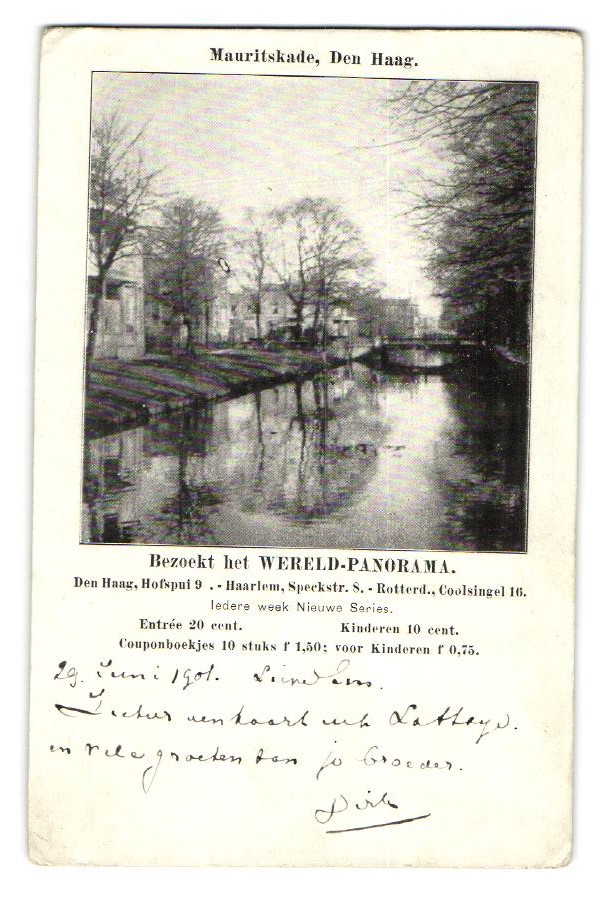 Mauritskade, Den Haag.
Bezoekt het WERELD-PANORAMA.
Den Haag, Hofspui 9 . - Haarlem, Speckstr. 8. - Rotterd., Coolsingel 16.
Iedere week Nieuwe Series.
Entrée 20 cent. Kinderen 10 cent.
Couponboekjes 10 stuks f 1,50; voor Kinderen f 0,75.
29. Juni 1901.
en vele groeten van je broeder.
Dirk